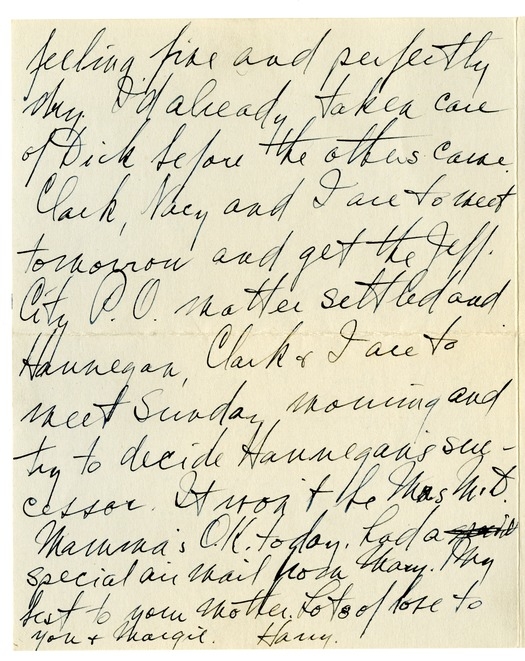 feeling fine and perfectly
dry. I'd already taken care
of Dick before the others came.
Clark, Nacy and I are to meet
tomorrow and get the Jeff.
City P.O. matter settled and
Hannegan, Clark & I are to
meet Sunday morning and
try to decide Hannegan's suc-
cessor. It won't be Mrs McD.
Mamma's OK. today. Had a
special air mail from Mary. My
best to your mother. Lots of love to
you & Margie. Harry.